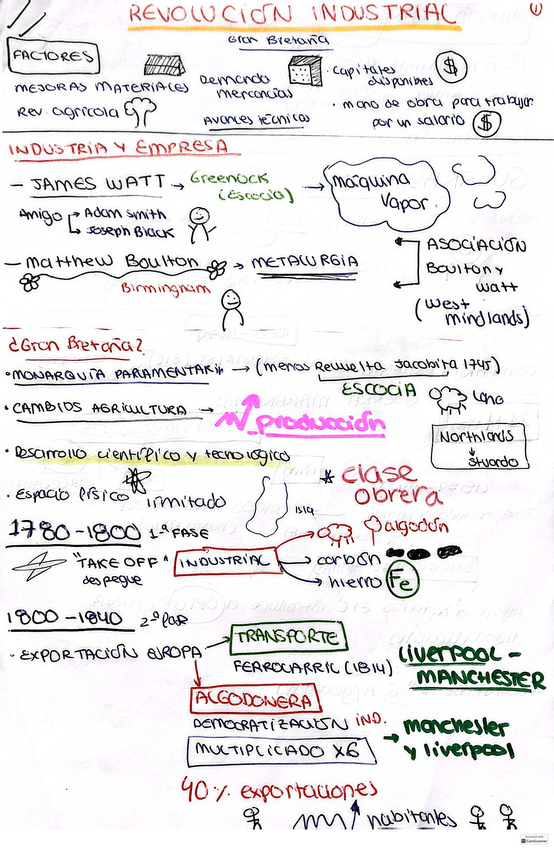 REVOLUCIÓN INDUSTRIAL
1
Gran Bretaña
FACTORES
MEJORAS MATERIALES
Rev. agrícola
Demanda mercancías
Avances técnicos
· Capitales disponibles $
· mano de obra para trabajar por un salario $
INDUSTRIA Y EMPRESA
- JAMES WATT → Greenock (Escocia) → máquina vapor
Amigo → Adam Smith
→ Joseph Black
- Matthew Boulton → METALURGIA
Birmingham
ASOCIACIÓN
Boulton y Watt
(West mindlands)
¿Gran Bretaña?
· MONARQUÍA PARAMENTARIA → (menos Revuelta Jacobita 1745)
ESCOCIA
· CAMBIOS AGRICULTURA → producción
lana
Northlands
↓ stuardo
· Desarrollo científico y tecnológico
* clase obrera
· Espacio físico limitado
isla
1780-1800 1ª FASE
"TAKE OFF"
despegue
INDUSTRIAL
algodón
→ carbón
→ hierro Fe
1800-1840 2ª
· EXPORTACIÓN EUROPA → TRANSPORTE
FERROCARRIL (1814)
LIVERPOOL - MANCHESTER
ALGODONERA
DEMOCRATIZACIÓN IND.
MULTIPLICADO X6
→ manchester y liverpool
40% exportaciones
habitantes
CamScanner